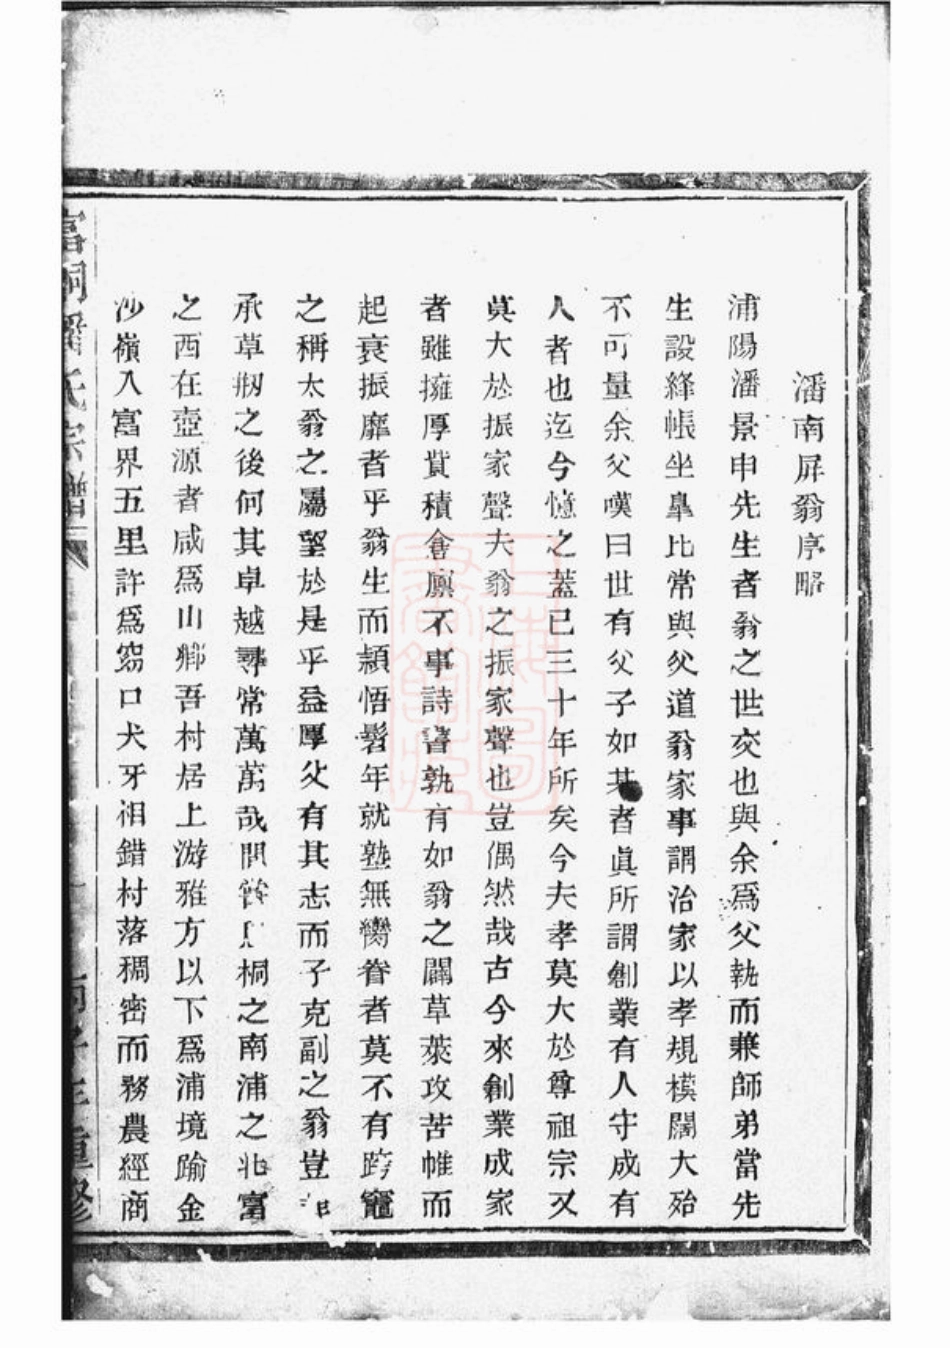 潘南屏翁序略
浦陽潘景申先生者翁之世交也與余爲父執而兼師弟當先
生設絳帳坐臯比常與父道翁家事謂治家以孝規模闊大殆
不可量余父嘆曰世有父子如某者眞所謂創業有人守成有
人者也迄今憶之蓋已三十年所矣今夫孝莫大於尊祖宗又
莫大於振家聲夫翁之振家聲也豈偶然哉古今來創業成家
者雖擁厚貲積倉廩不事詩書孰有如翁之闢草萊攻苦帷而
起衰振靡者乎翁生而頴悟髫年就塾無戀眷者莫不有跨竈
之稱太翁之屬望於是乎益厚父有其志而子克副之翁豈
承草剏之後何其卓越尋常萬萬哉間嘗桐之南浦之北富
之西在壺源者咸爲山鄉吾村居上游雅方以下爲浦境踰金
沙嶺入富界五里許爲窈口犬牙相錯村落稠密而務農經商
富桐潘氏宗譜
重修